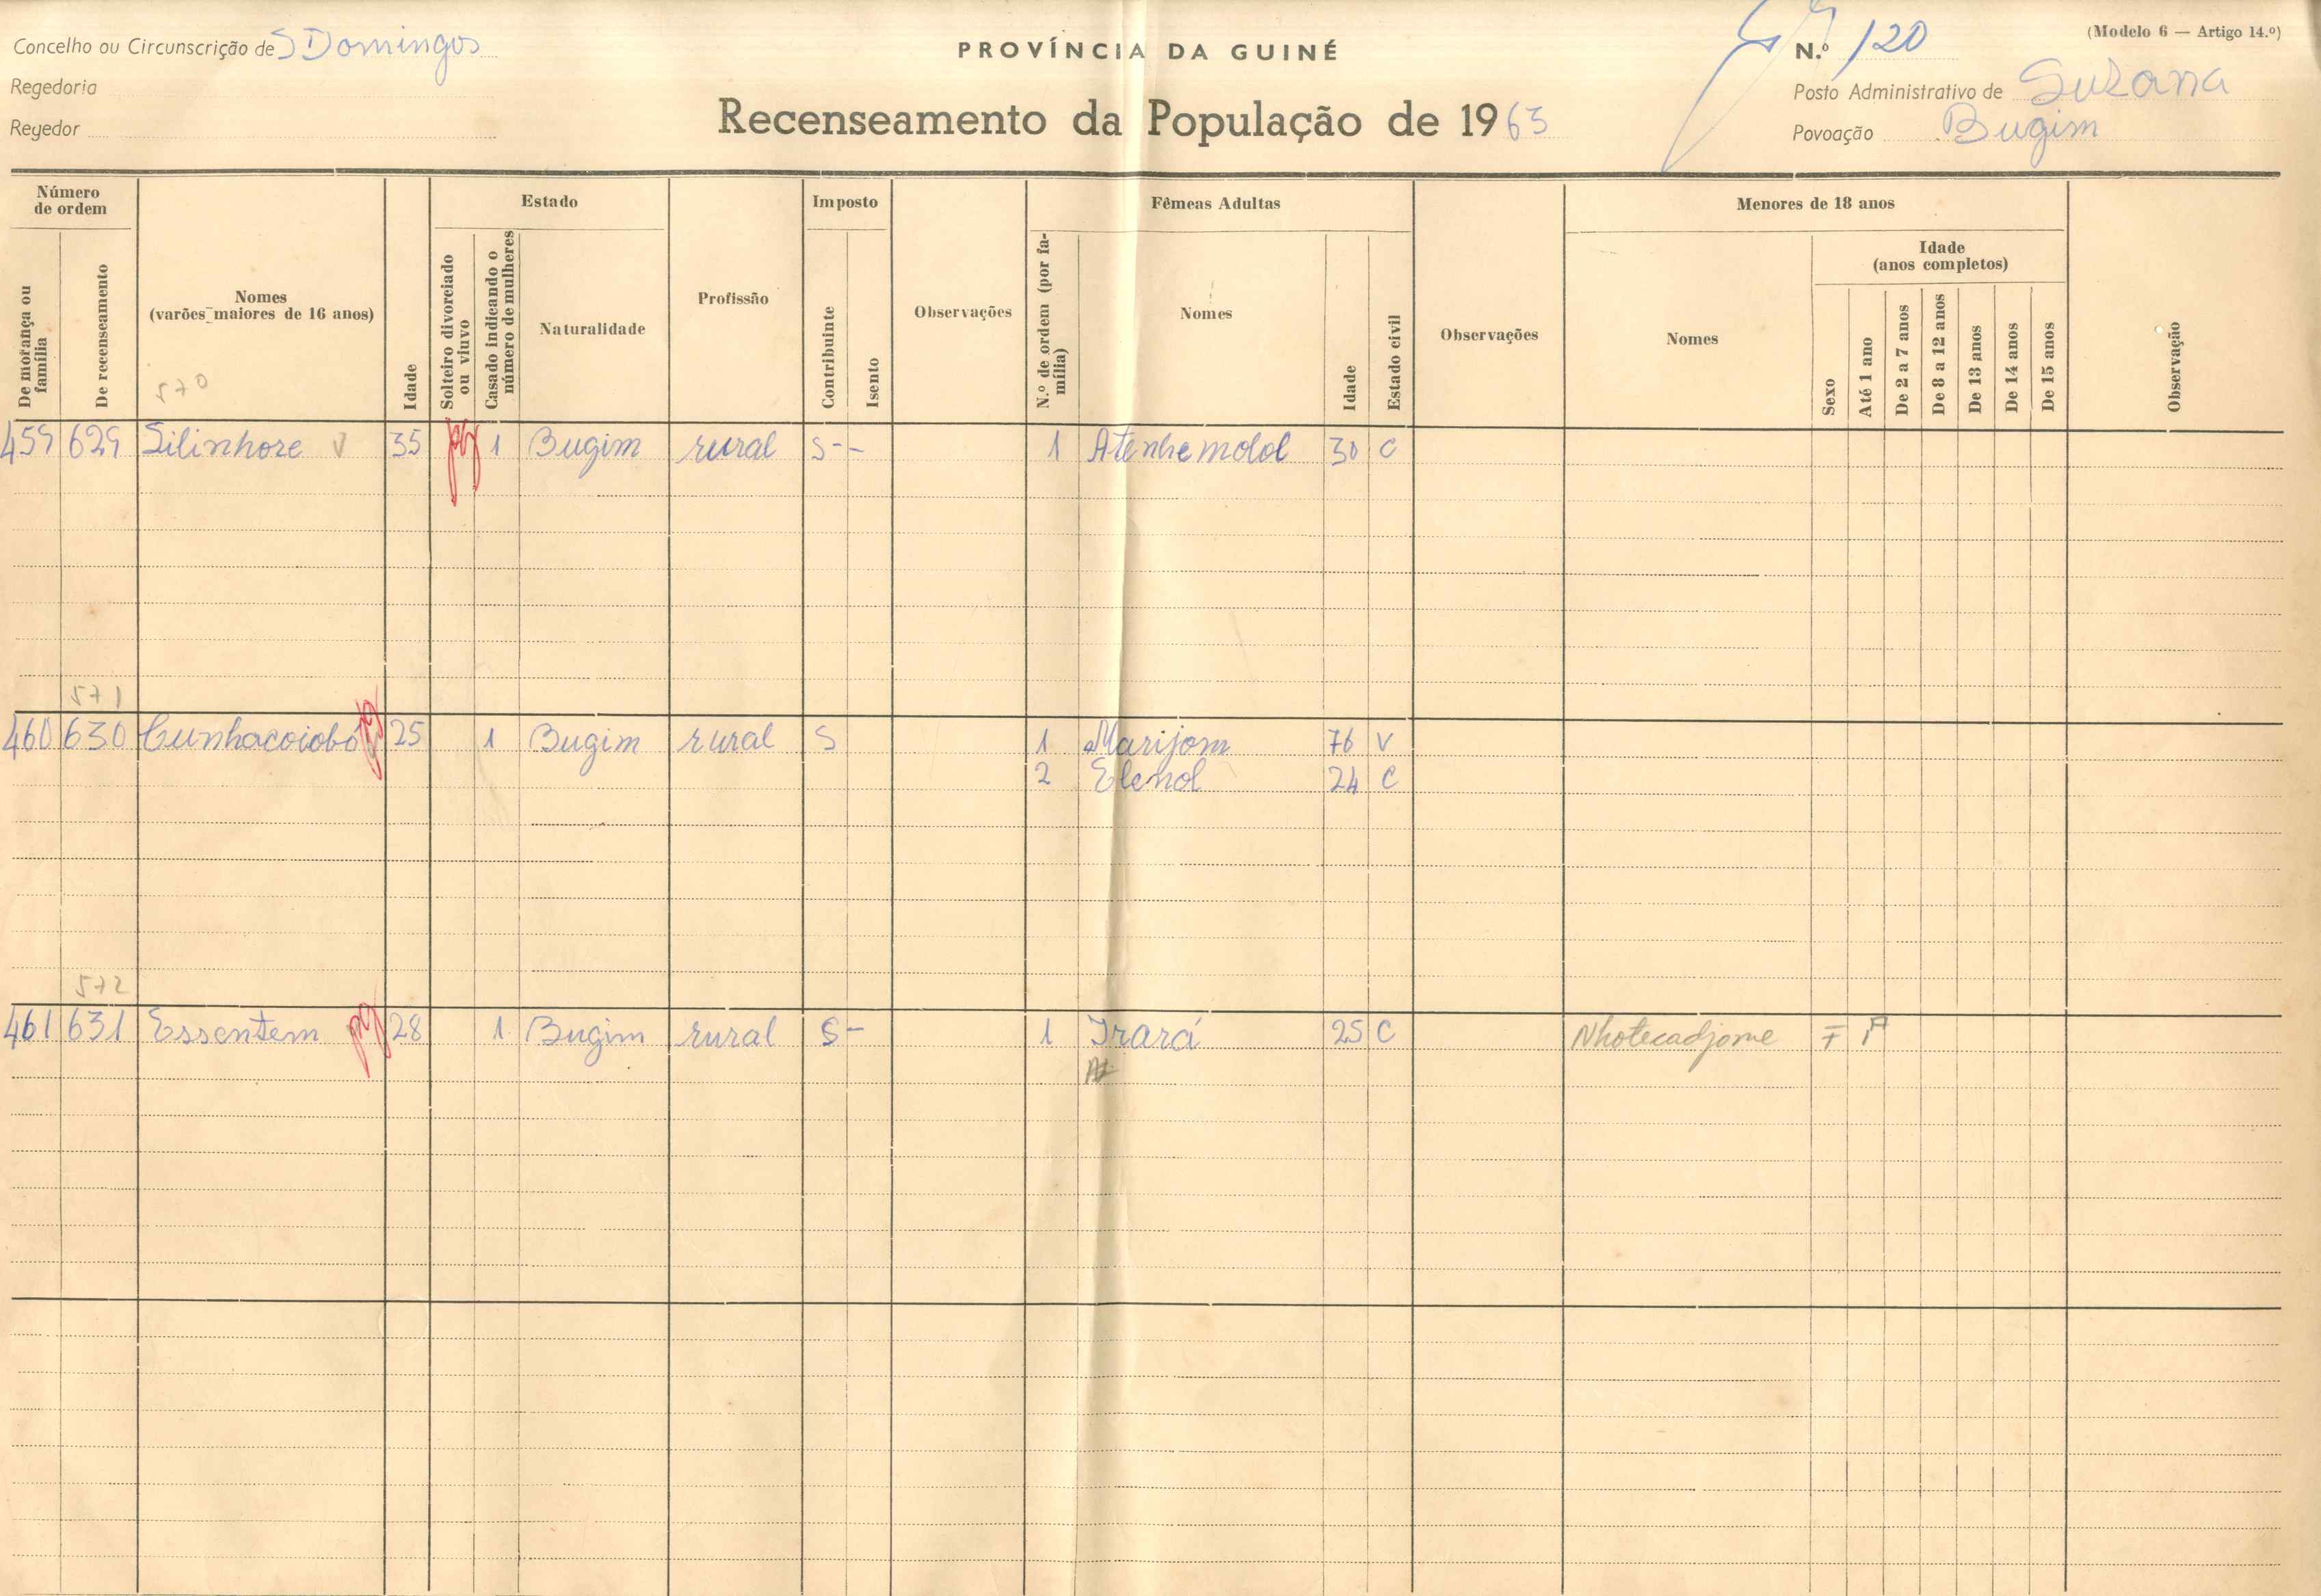 Concelho ou Circunscrição de S Domingos
Regedoria
Reyedor
PROVÍNCIA DA GUINÉ
Recenseamento da População de 1963
(Modelo 6 — Artigo 14.º)
N.º 120
Posto Administrativo de Suzana
Povoação Bugim
Número de ordem
De morança ou família
De recenseamento
Nomes
(varões maiores de 16 anos)
570
Idade
Estado
Solteiro divorciado ou viuvo
Casado indicando o número de mulheres
Naturalidade
Profissão
Imposto
Contribuinte
Isento
Observações
Fêmeas Adultas
N.º de ordem (por família)
Nomes
Idade
Estado civil
Observações
Menores de 18 anos
Nomes
Sexo
Idade
(anos completos)
Até 1 ano
De 2 a 7 anos
De 8 a 12 anos
De 13 anos
De 14 anos
De 15 anos
Observação
459 629 Silinhore V 35 pg 1 Bugim rural S - - 1 Atenhemolol 30 C
571
460 630 Cunhacoiobó pg 25 1 Bugim rural S 1 Marijom 76 V
2 Elenol 24 C
572
461 631 Essentem pg 28 1 Bugim rural S - 1 Irará 25 C Nhotecadjome F